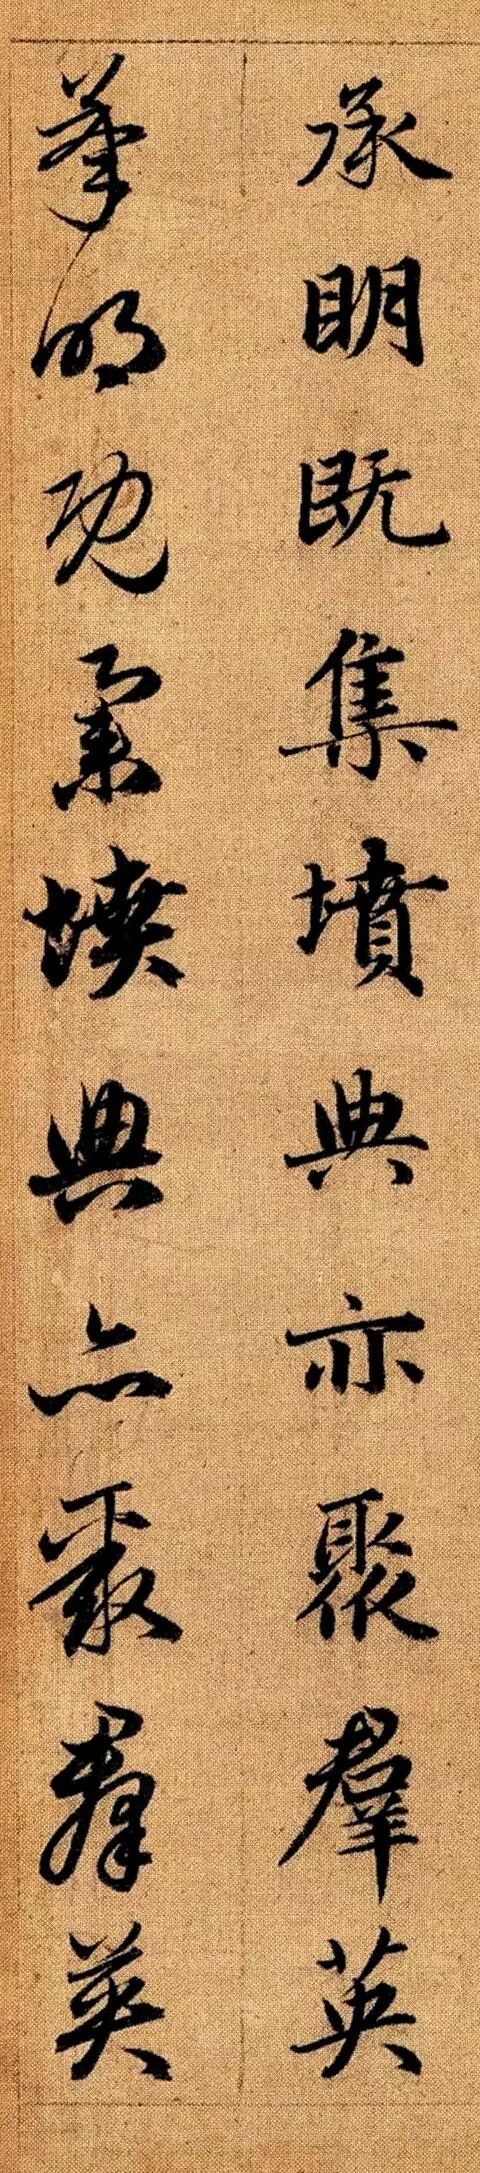 承明既集墳典亦聚羣英
承明既集墳典亦聚羣英